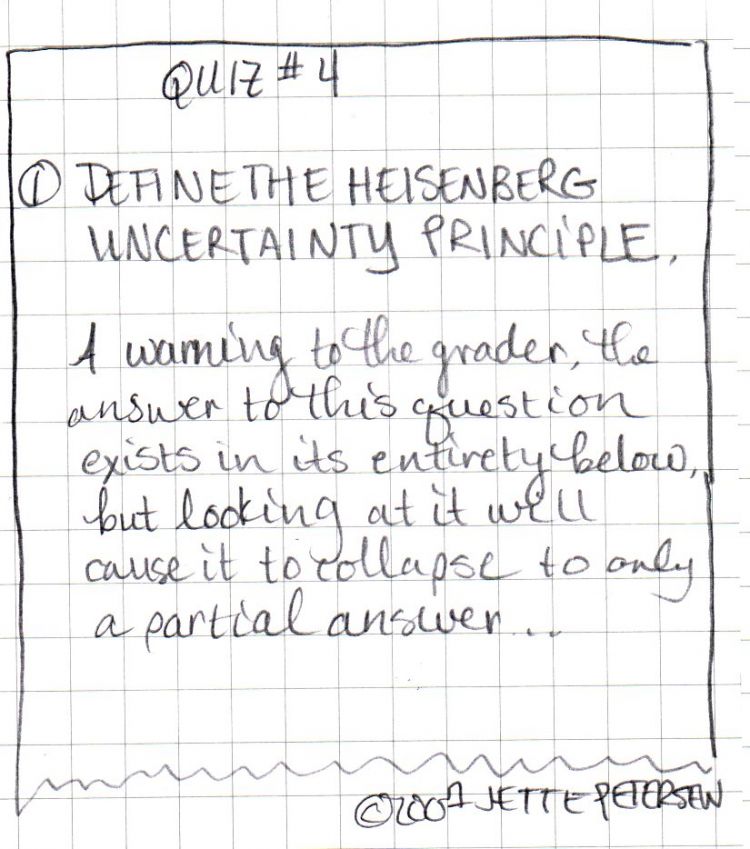 QUIZ # 4
① DEFINE THE HEISENBERG
UNCERTAINTY PRINCIPLE.
A warning to the grader, the
answer to this question
exists in its entirety below,
but looking at it will
cause it to collapse to only
a partial answer...
©2007 JETTE PETERSEN